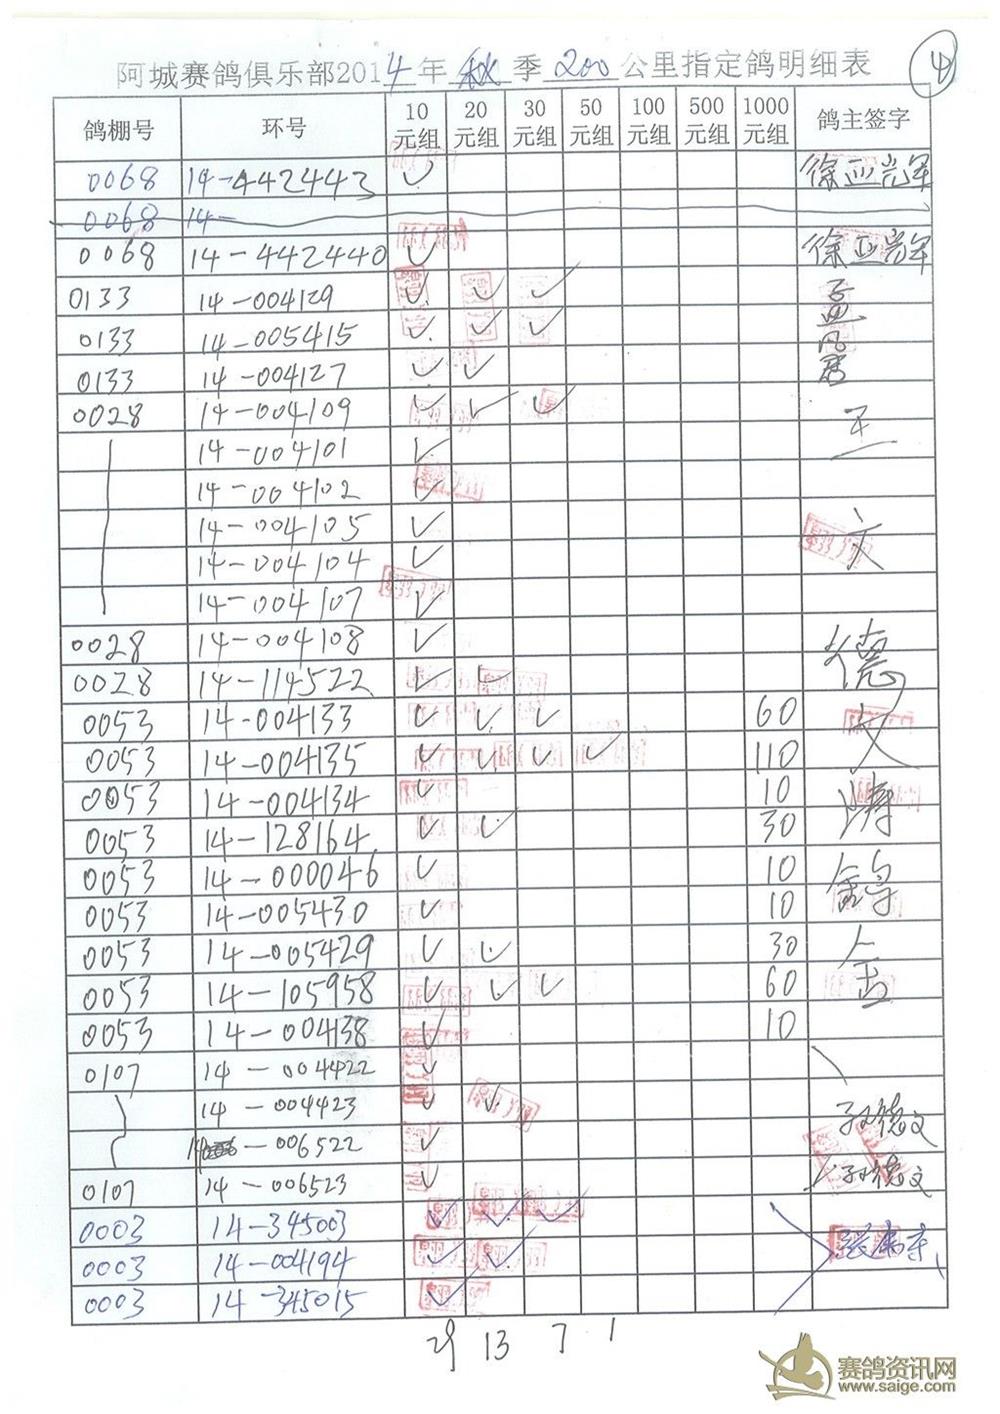 阿城赛鸽俱乐部2014年 秋 季 200 公里指定鸽明细表 4
鸽棚号 环号 10元组 20元组 30元组 50元组 100元组 500元组 1000元组 鸽主签字
0068 14-442443 ✓ 徐亚光军
0068 14-
0068 14-442440 ✓ 徐亚光军
0133 14-004129 ✓ ✓ ✓ 孟
0133 14-005415 ✓ ✓ ✓
0133 14-004127 ✓ ✓
0028 14-004109 ✓ ✓ ✓ 王
14-004101 ✓
14-004102 ✓
14-004105 ✓ 文
14-004104 ✓
14-004107 ✓
0028 14-004108 ✓ 德
0028 14-114522 ✓ ✓
0053 14-004133 ✓ ✓ ✓ 60
0053 14-004135 ✓ ✓ ✓ ✓ 110
0053 14-004134 ✓ 10
0053 14-128164 ✓ ✓ 30
0053 14-000046 ✓ 10
0053 14-005430 ✓ 10
0053 14-005429 ✓ ✓ 30
0053 14-105958 ✓ ✓ ✓ 60
0053 14-004138 ✓ 10
0107 14-004422 ✓
14-004423 ✓ ✓ 孙德文
14-006522 ✓
0107 14-006523 ✓ 孙德文
0003 14-345003 ✓ ✓ ✓
0003 14-004194 ✓ ✓
0003 14-345015 ✓
29 13 7 1
赛鸽资讯网
www.saige.com